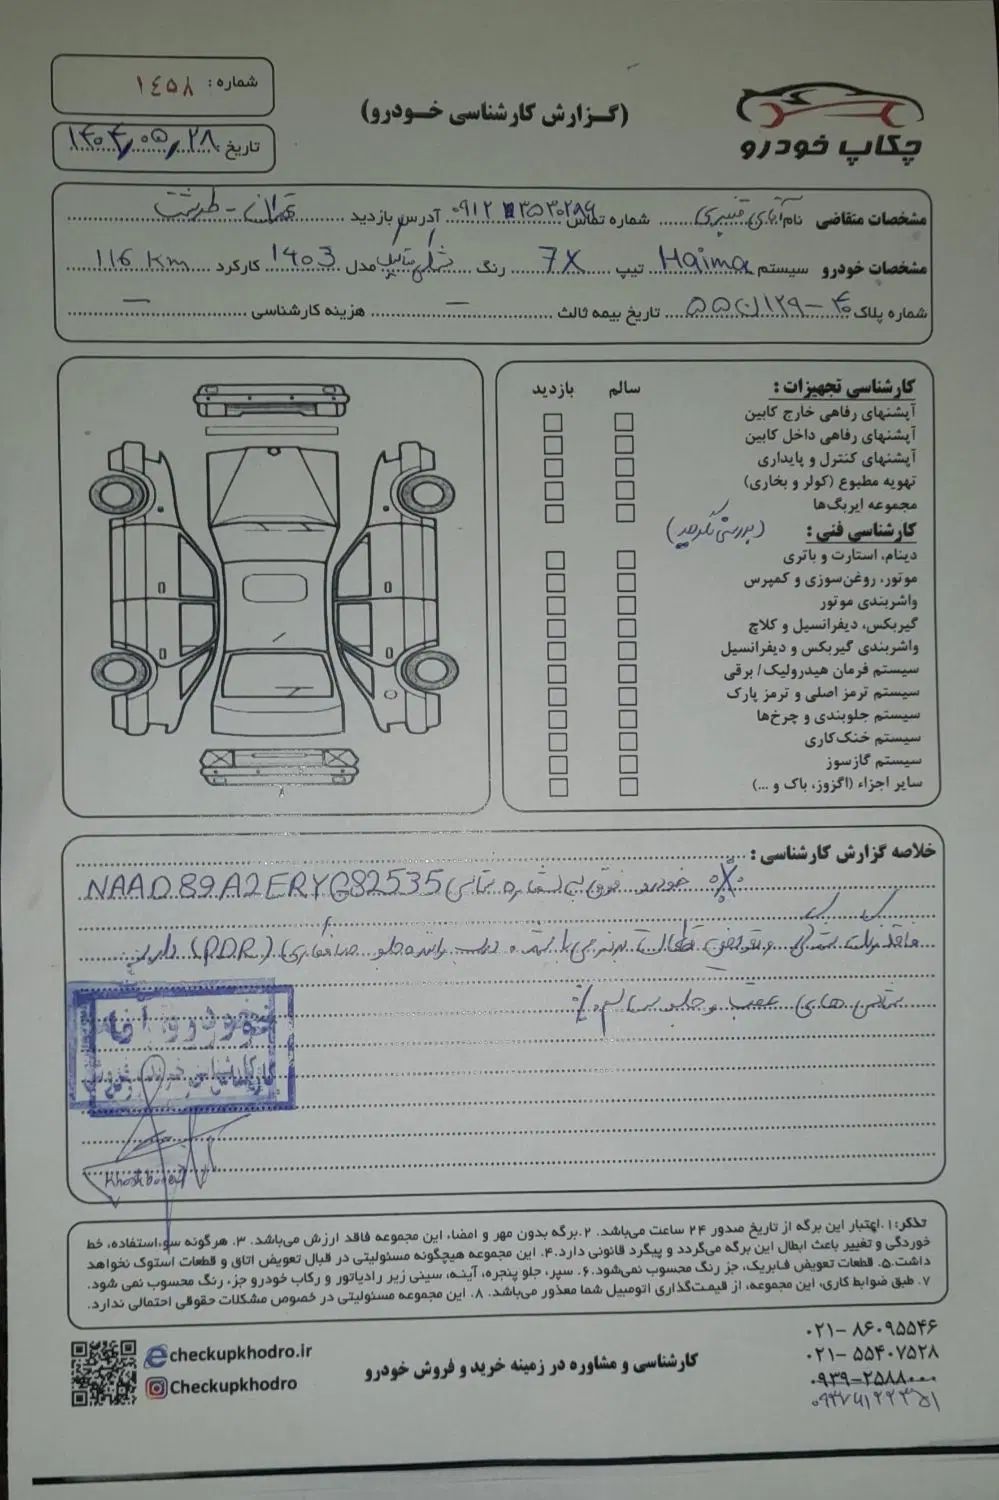 چکاپ خودرو
(گزارش کارشناسی خودرو)
شماره: ۱۴۵۸
تاریخ ۱۴۰۴/۰۵/۲۸
مشخصات متقاضی نام آقای قنبری شماره تماس ۰۹۱۲ ۳۵۳۰۲۸۹ آدرس بازدید تهران - طرشت
مشخصات خودرو سیستم Haima تیپ 7X رنگ مدل ۱۴۰۳ کارکرد 116 Km
شماره پلاک ۴۰ - ۱۲۹ ن ۵۵ تاریخ بیمه ثالث — هزینه کارشناسی —
کارشناسی تجهیزات : سالم بازدید
آپشنهای رفاهی خارج کابین
آپشنهای رفاهی داخل کابین
آپشنهای کنترل و پایداری
تهویه مطبوع (کولر و بخاری)
مجموعه ایربگ‌ها
کارشناسی فنی : (بررسی نگردید)
دینام، استارت و باتری
موتور، روغن‌سوزی و کمپرس
واشربندی موتور
گیربکس، دیفرانسیل و کلاچ
واشربندی گیربکس و دیفرانسیل
سیستم فرمان هیدرولیک/ برقی
سیستم ترمز اصلی و ترمز پارک
سیستم جلوبندی و چرخ‌ها
سیستم خنک‌کاری
سیستم گازسوز
سایر اجزاء (اگزوز، باک و ...)
خلاصه گزارش کارشناسی :
خودرو فوق به شماره شاسی NAAD89A2ERYG82535
فاقد رنگ شدگی و تعویض قطعات بدنه می‌باشد و درب راننده جلو صافکاری (PDR) دارد.
شاسی های عقب و جلو سالم.
Khoshbonet
تذکر: ۱.اعتبار این برگه از تاریخ صدور ۲۴ ساعت می‌باشد. ۲.برگه بدون مهر و امضاء، این مجموعه فاقد ارزش می‌باشد. ۳. هرگونه سوءاستفاده، خط
خوردگی و تغییر باعث ابطال این برگه می‌گردد و پیگرد قانونی دارد.۴. این مجموعه هیچگونه مسئولیتی در قبال تعویض اتاق و قطعات استوک نخواهد
داشت.۵. قطعات تعویض فابریک، جز رنگ محسوب نمی‌شود.۶. سپر، جلو پنجره، آینه، سینی زیر رادیاتور و رکاب خودرو جز، رنگ محسوب نمی شود.
۷. طبق ضوابط کاری، این مجموعه، از قیمت‌گذاری اتومبیل شما معذور می‌باشد. ۸. این مجموعه مسئولیتی در خصوص مشکلات حقوقی احتمالی ندارد.
۰۲۱- ۸۶۰۹۵۵۴۶
۰۲۱- ۵۵۴۰۷۵۲۸
۰۹۳۹-۲۵۸۸۰۰۰
کارشناسی و مشاوره در زمینه خرید و فروش خودرو
checkupkhodro.ir
Checkupkhodro